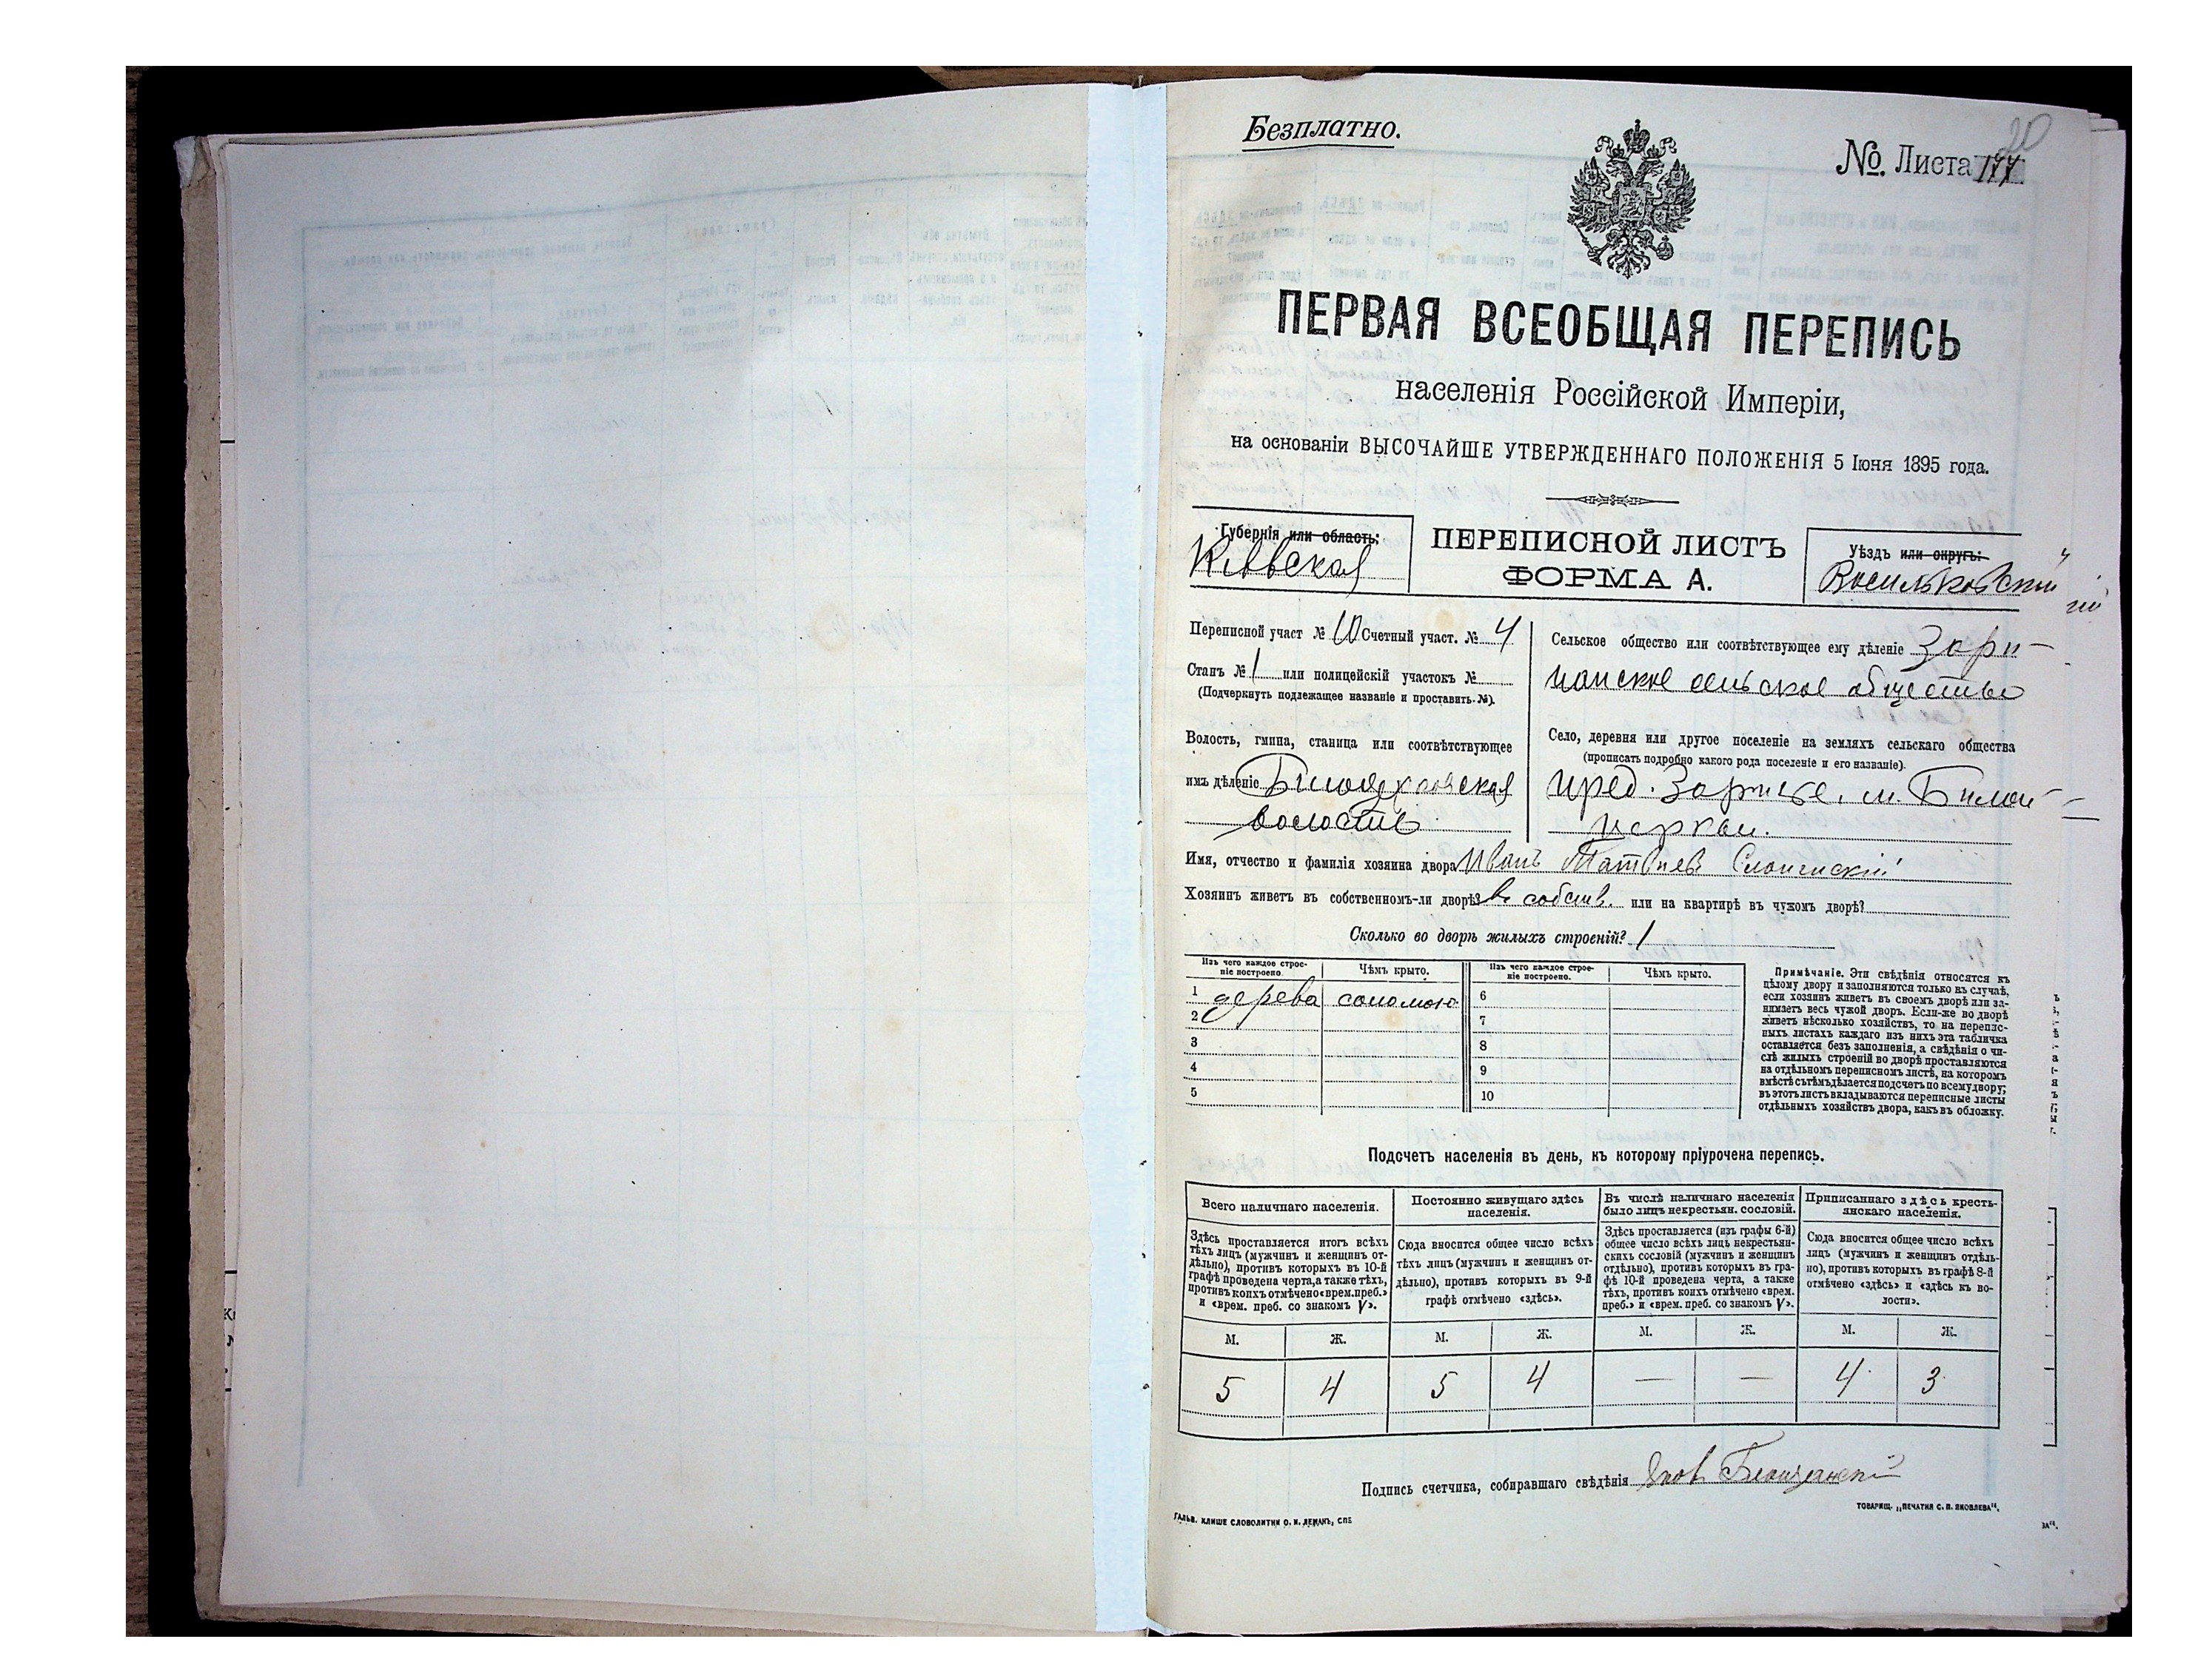 Безплатно.
20
№. Листа 177.
ПЕРВАЯ ВСЕОБЩАЯ ПЕРЕПИСЬ
населенія Россійской Имперіи,
на основаніи ВЫСОЧАЙШЕ УТВЕРЖДЕННАГО ПОЛОЖЕНІЯ 5 Іюня 1895 года.
Губернія или область:
Кіевская
ПЕРЕПИСНОЙ ЛИСТЪ
ФОРМА А.
Уѣздъ или округъ:
Васильковскій
Переписной участ № 10 Счетный участ. № 4
Станъ № 1 или полицейскій участокъ №
(Подчеркнуть подлежащее названіе и проставить №).
Волость, гмина, станица или соотвѣтствующее
имъ дѣленіе
волость
Сельское общество или соотвѣтствующее ему дѣленіе Зари-
цанское сельское общество
Село, деревня или другое поселеніе на земляхъ сельскаго общества
(прописать подробно какого рода поселеніе и его названіе).
пред. Заричье. м. Билой-
церкви.
Имя, отчество и фамилія хозяина двора Иванъ Матвіев
Хозяинъ живетъ въ собственномъ-ли дворѣ? въ собств. или на квартирѣ въ чужомъ дворѣ?
Сколько во дворѣ жилыхъ строеній? 1
Изъ чего каждое строе-
ніе построено.
Чѣмъ крыто.
1 дерева соломою
2
3
4
5
Изъ чего каждое строе-
ніе построено.
Чѣмъ крыто.
6
7
8
9
10
Примѣчаніе. Эти свѣдѣнія относятся къ
цѣлому двору и заполняются только въ случаѣ,
если хозяинъ живетъ въ своемъ дворѣ или за-
нимаетъ весь чужой дворъ. Если-же во дворѣ
живетъ нѣсколько хозяйствъ, то на перепис-
ныхъ листахъ каждаго изъ нихъ эта табличка
оставляется безъ заполненія, а свѣдѣнія о чи-
слѣ жилыхъ строеній во дворѣ проставляются
на отдѣльномъ переписномъ листѣ, на которомъ
вмѣстѣ съ тѣмъ дѣлается подсчетъ по всему двору;
въ этотъ листъ вкладываются переписные листы
отдѣльныхъ хозяйствъ двора, какъ въ обложку.
Подсчетъ населенія въ день, къ которому пріурочена перепись.
Всего наличнаго населенія.
Здѣсь проставляется итогъ всѣхъ
тѣхъ лицъ (мужчинъ и женщинъ от-
дѣльно), противъ которыхъ въ 10-й
графѣ проведена черта, а также тѣхъ,
противъ коихъ отмѣчено «врем. преб.»
и «врем. преб. со знакомъ V».
Постоянно живущаго здѣсь
населенія.
Сюда вносится общее число всѣхъ
тѣхъ лицъ (мужчинъ и женщинъ от-
дѣльно), противъ которыхъ въ 9-й
графѣ отмѣчено «здѣсь».
Въ числѣ наличнаго населенія
было лицъ некрестьян. сословій.
Здѣсь проставляется (изъ графы 6-й)
общее число всѣхъ лицъ некрестьян-
скихъ сословій (мужчинъ и женщинъ
отдѣльно), противъ которыхъ въ гра-
фѣ 10-й проведена черта, а также
тѣхъ, противъ коихъ отмѣчено «врем.
преб.» и «врем. преб. со знакомъ V».
Приписаннаго здѣсь кресть-
янскаго населенія.
Сюда вносится общее число всѣхъ
лицъ (мужчинъ и женщинъ отдѣль-
но), противъ которыхъ въ графѣ 8-й
отмѣчено «здѣсь» и «здѣсь къ во-
лости».
М. Ж. М. Ж. М. Ж. М. Ж.
5 4 5 4 — — 4 3
Подпись счетчика, собиравшаго свѣдѣнія
ГАЛЬВ. КЛИШЕ СЛОВОЛИТНИ О. И. ЛЕМАНЪ, СПБ
ТОВАРИЩ. „ПЕЧАТНЯ С. П. ЯКОВЛЕВА“.